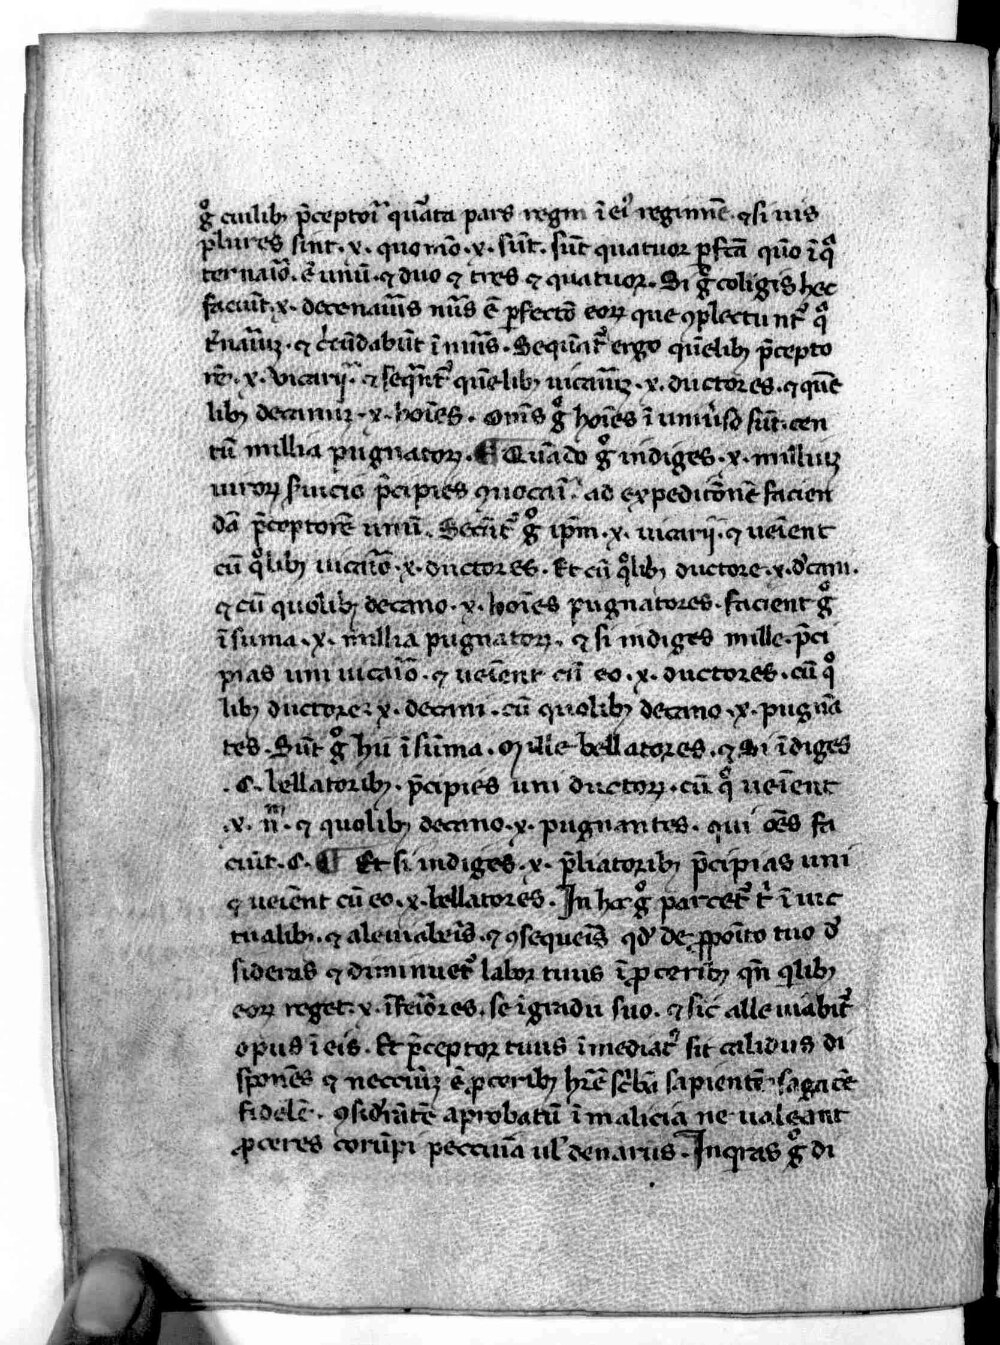 g̊ cuilibꝫ p̄ceptori quarta pars regni ī eiꝰ regimine. ⁊ si uis
plures sint .x. quō mō .x. sūt. sūt quatuor ꝑfcā quō ī q̊
ternario. ē unū. ⁊ duo ⁊ tres ⁊ quatuor. Si g̊ coligis hec
faciūt .x. decenariꝰ nūs ē ꝑfectō eoꝝ que ꝯplectunt᷑ q̊
⁊ Sequāt᷑ ergo quēlibꝫ p̄cepto
rē .x. vicarij. ⁊ seqn̄t᷑ quēlibꝫ uicariuꝫ .x. ductores. ⁊ quē
libꝫ decanuꝫ .x. hoīes. om̄s g̊ hoīes ī uniuso sūt. cen
tū millia pugnatoꝝ. ¶ Quādo g̊ indiges .x. milliuꝫ
uiroꝝ ad expeditōnē facien
dā p̄ceptorē unū. Secūt᷑ g̊ ip̄m .x. uicarij. ⁊ ueīent
cū qͦlibꝫ uicariō .x. ductores. Et cū qͦlibꝫ ductore .x. dcani.
⁊ cū quolibꝫ decano .x. hoīes pugnatores. facient g̊
ī suma .x. millia pugnatoꝝ. ⁊ si indiges mille. p̄ci
pias uni uicariō. ⁊ ueīent cū eo .x. ductores. cū qͦ
libꝫ ductore .x. decani. cū quolibꝫ decano .x. pugnā
tes. Sūt g̊ hii ī sūma. Mille bellatores. ⁊ Si īdiges
.C. bellatoribꝫ. p̄cipies uni ductoꝝ. cū qͦ ueīent
.x. ⁊ quolibꝫ decano .x. pugnantes. qui oēs fa
ciūt .C. ¶ Et si indiges .x. p̄liatoribꝫ p̄cipias uni
⁊ ueīent cū eo .x. bellatores. In hoc g̊ parcet᷑ tͥ ī uic
tualibꝫ. ⁊ ⁊ ꝯsequeīs qd de ꝓpoīto tuo d̓
sideras ⁊ diminuet᷑ labor tuus ī ꝓceribꝫ qn̄ qͥlibꝫ
eoꝝ reget .x. īferiōres. se ī gradu suo. ⁊ sic alleuiabit᷑
opus ī eis. Et p̄ceptor tuus īmediatꝰ sit calidus di
spōnēs ⁊ neccīuꝫ ē ꝓceribꝫ hr̄e sc̄bā sapientē sagacē
fidelē. ꝯsidrātē aprobatū ī malicia ne ualeant
ꝓceres corūpi peccunia ul̓ denariis. Inqras g̊ di